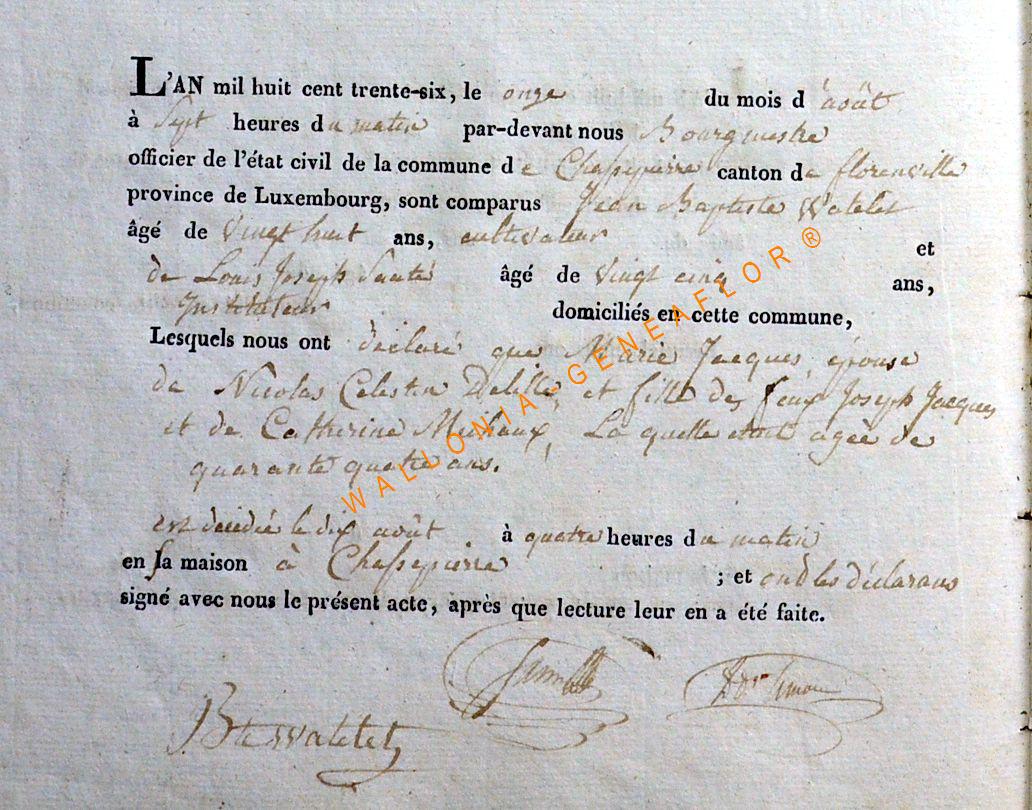 L'AN mil huit cent trente-six, le onze du mois d'août
à Sept heures du matin par-devant nous Bourgmestre
officier de l'état civil de la commune de Chassepierre canton de florenville
province de Luxembourg, sont comparus Jean Baptiste Watelet
âgé de vingt huit ans, cultivateur et
de Louis Joseph âgé de vingt cinq ans,
Instituteur domiciliés en cette commune,
Lesquels nous ont déclaré que Marie Jacques, épouse
de Nicolas Celestin Delille, et fille des feux Joseph Jacques
et de Catherine Michaux, La quelle etoit agée de
quarante quatre ans.
est décédée le dix août à quatre heures du matin
en sa maison à Chassepierre ; et ond les déclarans
signé avec nous le présent acte, après que lecture leur en a été faite.
JBte Watelet
WALLONIA-GENEAFLOR ®